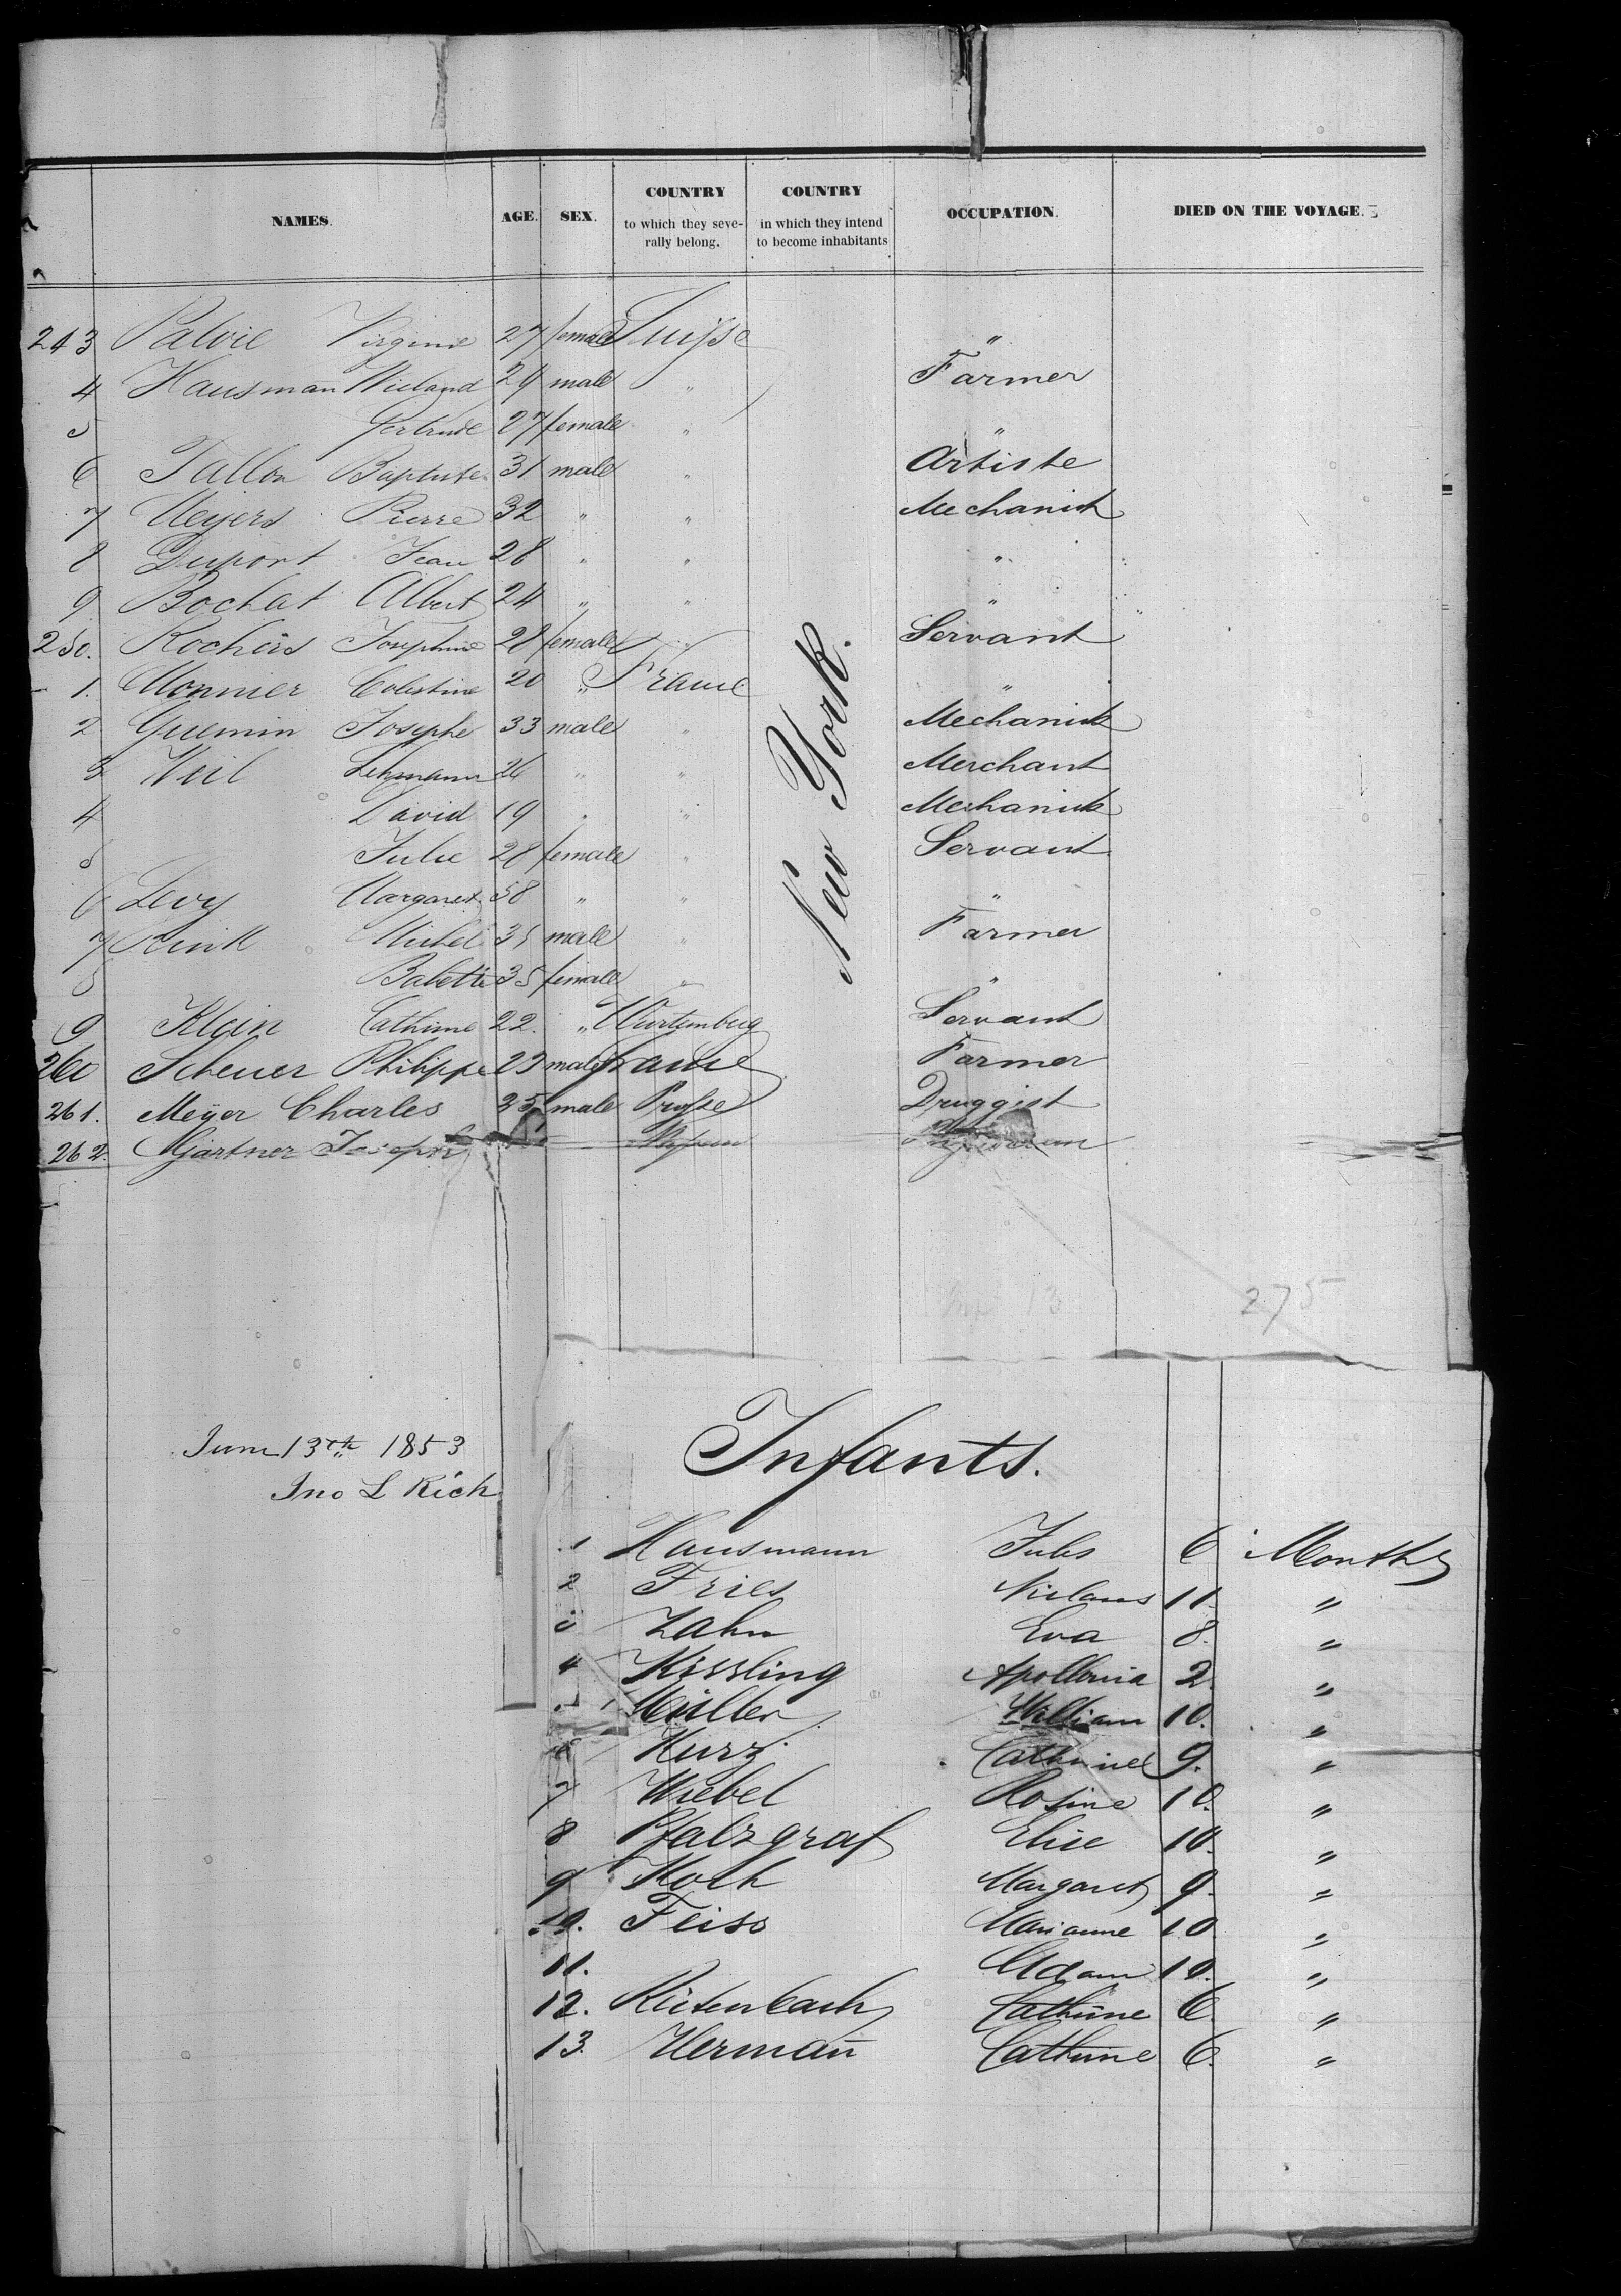 NAMES. AGE. SEX. COUNTRY to which they severally belong. COUNTRY in which they intend to become inhabitants OCCUPATION. DIED ON THE VOYAGE.
243 Palvie Virginie 27 female Suisse "
4 Hausman Wieland 29 male " Farmer
5 Gertrude 27 female " "
6 Tallon Baptiste 31 male " Artiste
7 Meyers Pierre 32 " " Mechanick
8 Duport Jean 28 " " "
9 Bochat Albert 24 " " "
250. Josephine 28 female " Servant
1. Monnier Celestine 20 " France "
2 Guemin Josephe 33 male " Mechanick
3 Weil Lehmann 26 " " Merchant
4 David 19 " " Mechanick
5 Julie 28 female " Servant
6 Levy Margaret 58 " " "
7 Rink Michel 35 male " Farmer
8 Babette 35 female " "
9 Klein Cathrine 22. " Wurtemberg Servant
260 Scheuer Philippe 23 male France Farmer
261. Meyer Charles 25 male Prusse Druggist
262. Gjartner Joseph
New York.
13 275
June 13th 1853
Jno L Rich
Infants.
1 Hausmann Jules 6 Months
2 Fries Niclaus 11. "
3 Zahn Eva 8. "
4 Kissling Apollonia 2. "
5 Müller William 10. "
6 Kurz Cathrine 9. "
7 Wiebel Rosine 10. "
8 Pfalzgraf Elise 10. "
9 Koch Margaret 9. "
10. Feiss Marianne 10 "
11. Adam 10. "
12. Rietenbach Cathrine 6. "
13. Hermañ Cathrine 6. "